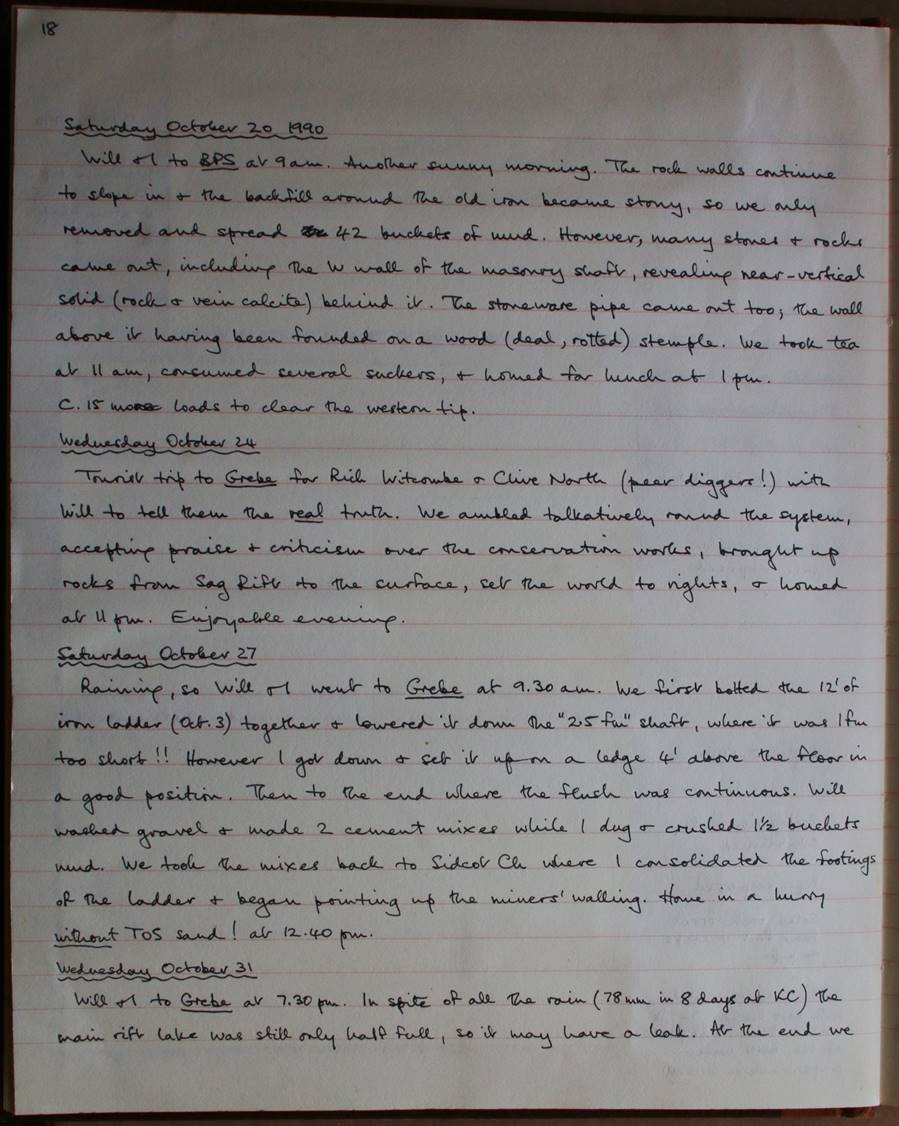 18
Saturday October 20 1990
Will & I to BPS at 9 am. Another sunny morning. The rock walls continue
to slope in & the backfill around the old iron became stony, so we only
removed and spread 42 buckets of mud. However, many stones & rocks
came out, including the W wall of the masonry shaft, revealing near-vertical
solid (rock & vein calcite) behind it. The stoneware pipe came out too; the wall
above it having been founded on a wood (deal, rotted) stemple. We took tea
at 11 am, consumed several suckers, & homed for lunch at 1 pm.
C. 15 more loads to clear the western tip.
Wednesday October 24
Tourist trip to Grebe for Rich Witcombe & Clive North (peer diggers!) with
Will to tell them the real truth. We ambled talkatively round the system,
accepting praise & criticism over the conservation works, brought up
rocks from Sag Rift to the surface, set the world to rights, & homed
at 11 pm. Enjoyable evening.
Saturday October 27
Raining, so Will & I went to Grebe at 9.30 am. We first bolted the 12' of
iron ladder (Oct. 3) together & lowered it down the "2.5 fm" shaft, where it was 1 fm
too short!! However I got down & set it up on a ledge 4' above the floor in
a good position. Then to the end where the flush was continuous. Will
washed gravel & made 2 cement mixes while I dug & crushed 1½ buckets
mud. We took the mixes back to Sidcot Ch where I consolidated the footings
of the ladder & began pointing up the miners' walling. Home in a hurry
without TOS sand! at 12.40 pm.
Wednesday October 31
Will & I to Grebe at 7.30 pm. In spite of all the rain (78 mm in 8 days at KC) the
main rift lake was still only half full, so it may have a leak. At the end we